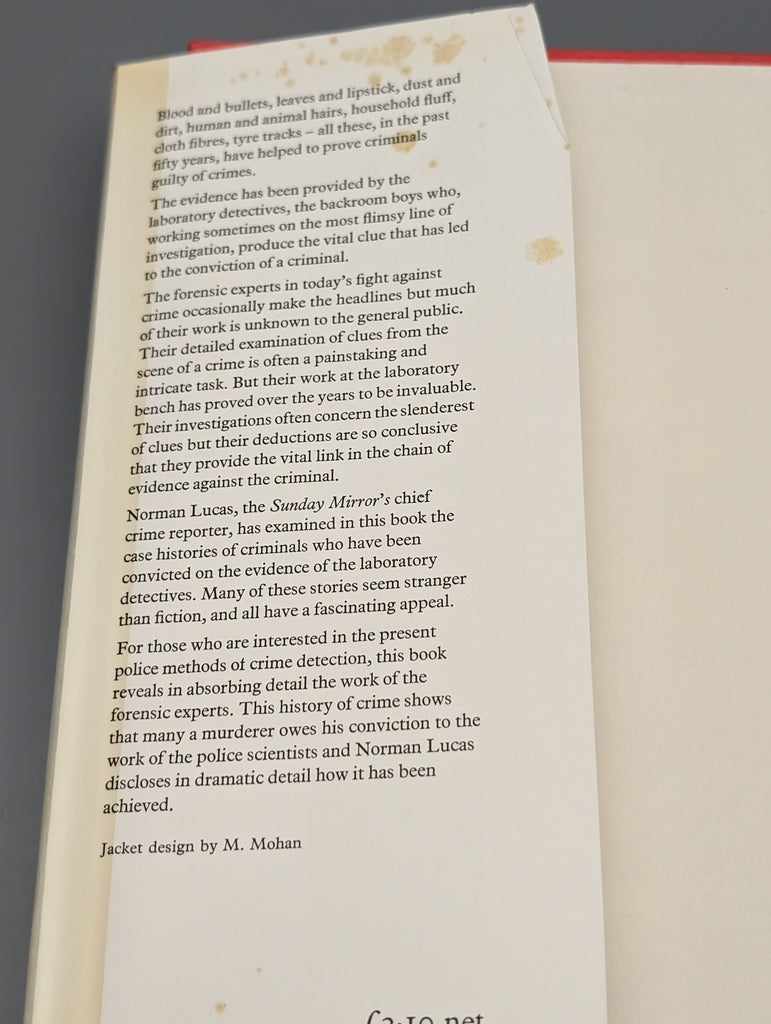 Blood and bullets, leaves and lipstick, dust and
dirt, human and animal hairs, household fluff,
cloth fibres, tyre tracks – all these, in the past
fifty years, have helped to prove criminals
guilty of crimes.
The evidence has been provided by the
laboratory detectives, the backroom boys who,
working sometimes on the most flimsy line of
investigation, produce the vital clue that has led
to the conviction of a criminal.
The forensic experts in today's fight against
crime occasionally make the headlines but much
of their work is unknown to the general public.
Their detailed examination of clues from the
scene of a crime is often a painstaking and
intricate task. But their work at the laboratory
bench has proved over the years to be invaluable.
Their investigations often concern the slenderest
of clues but their deductions are so conclusive
that they provide the vital link in the chain of
evidence against the criminal.
Norman Lucas, the Sunday Mirror's chief
crime reporter, has examined in this book the
case histories of criminals who have been
convicted on the evidence of the laboratory
detectives. Many of these stories seem stranger
than fiction, and all have a fascinating appeal.
For those who are interested in the present
police methods of crime detection, this book
reveals in absorbing detail the work of the
forensic experts. This history of crime shows
that many a murderer owes his conviction to the
work of the police scientists and Norman Lucas
discloses in dramatic detail how it has been
achieved.
Jacket design by M. Mohan
net